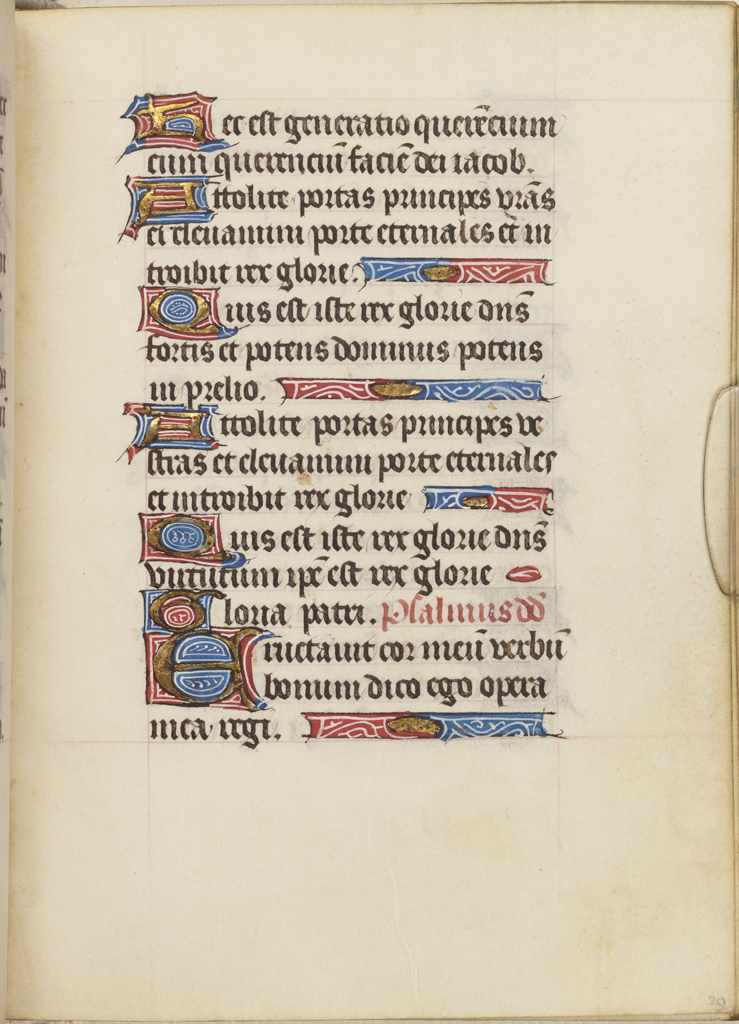 Hec est generatio querẽcium
eum querenciũ faciẽ dei iacob.
Attolite portas principes vrãs
et eleuamini porte eternales et in
troibit rex glorie.
Quis est iste rex glorie dñs
fortis et potens dominus potens
in prelio.
Attolite portas principes ve
stras et eleuamini porte eternales
et introibit rex glorie
Quis est iste rex glorie dñs
virtutum ip̃e est rex glorie
Gloria patri. Psalmus dd̃
Eructauit cor meũ verbũ
bonum dico ego opera
mea regi.
29